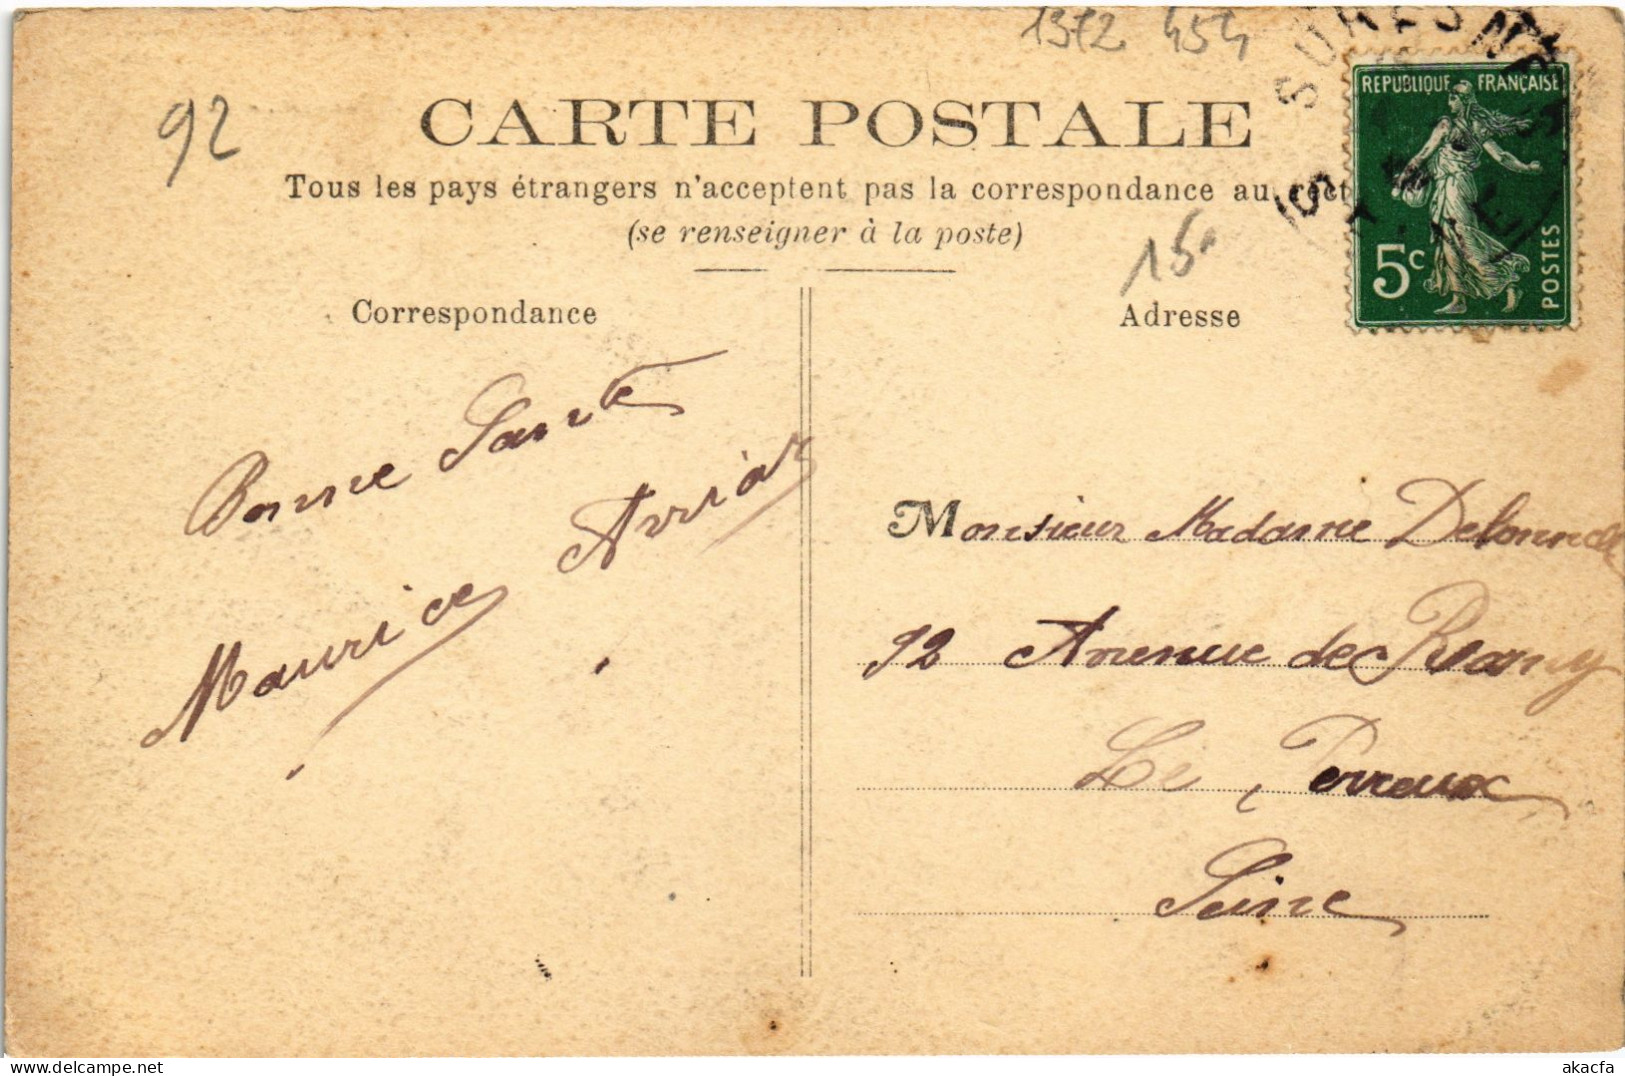 1372 454
SURESNES
92
CARTE POSTALE
REPUBLIQUE FRANÇAISE
Tous les pays étrangers n'acceptent pas la correspondance au rect
(se renseigner à la poste)
15
5c
POSTES
Correspondance
Adresse
Bonne Santé
Maurice
Monsieur Madame
92 Avenue de Rosny
Le Perreux
Seine
akacfa